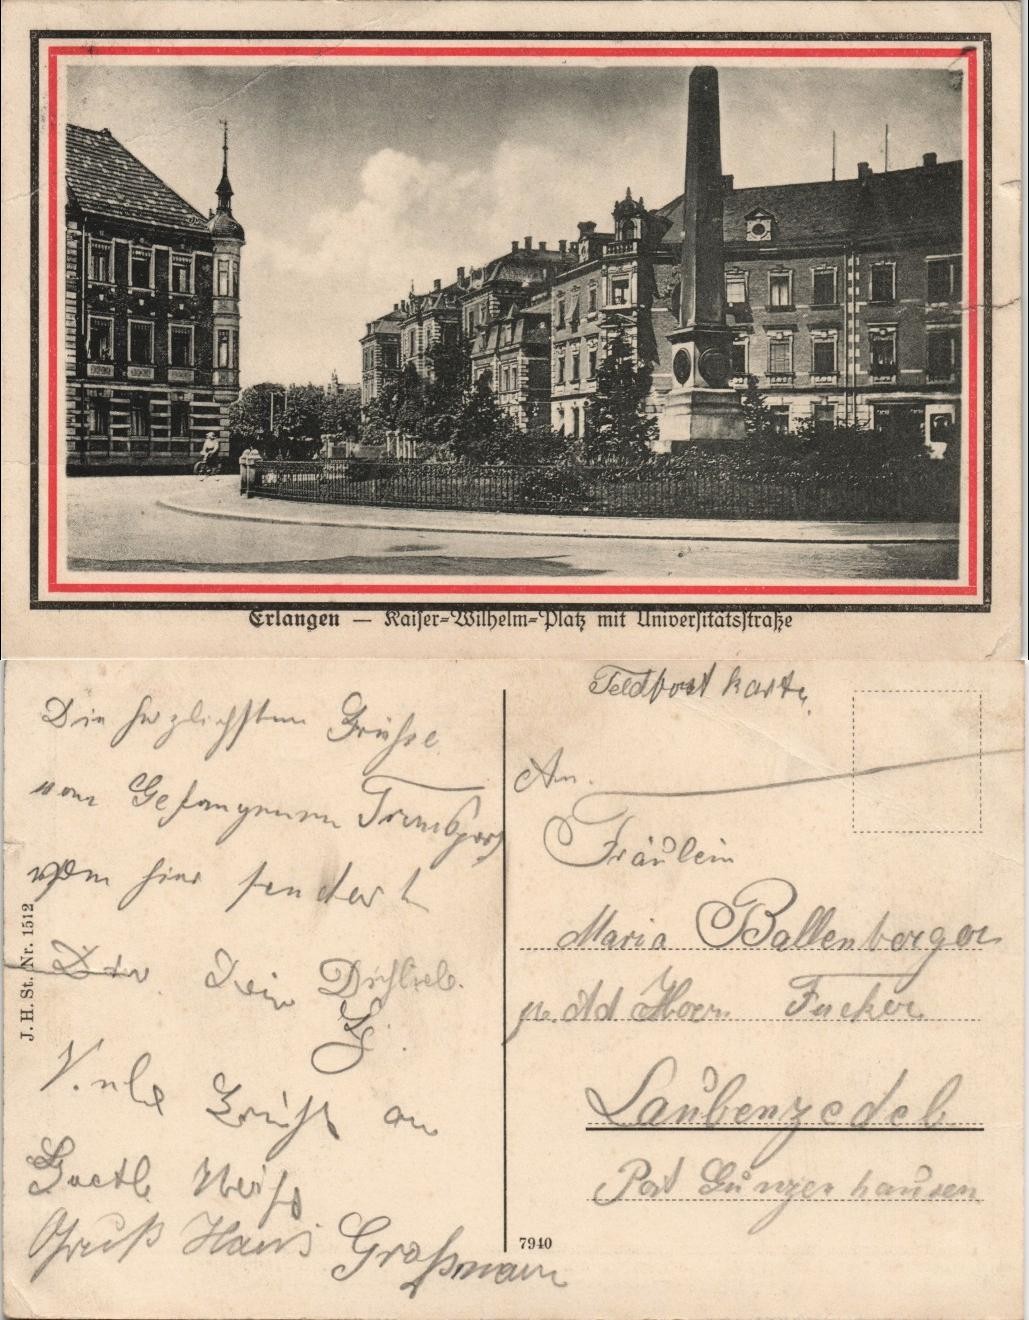 Erlangen — Kaiser-Wilhelm-Platz mit Universitätsstraße
Feldpost karte.
Die herzlichsten Grüsse
vom Gefangenen Transport
von hier sendet
Dir Dein
Viele Grüße an
Gruß Hans Großmann
J. H. St. Nr. 1512
An.
Fräulein
Maria Ballenberger
Herrn Fucker
Laubenzedel
Post Gunzenhausen
7940